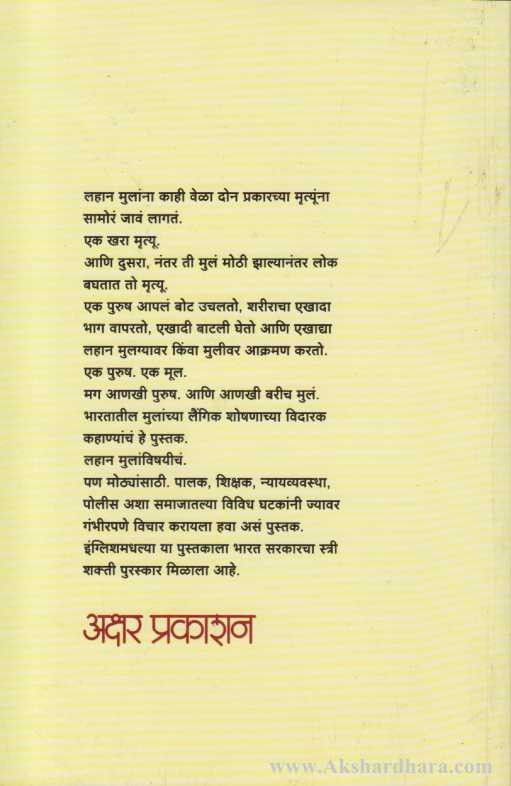 लहान मुलांना काही वेळा दोन प्रकारच्या मृत्यूंना
सामोरं जावं लागतं.
एक खरा मृत्यू.
आणि दुसरा, नंतर ती मुलं मोठी झाल्यानंतर लोक
बघतात तो मृत्यू.
एक पुरुष आपलं बोट उचलतो, शरीराचा एखादा
भाग वापरतो, एखादी बाटली घेतो आणि एखाद्या
लहान मुलग्यावर किंवा मुलीवर आक्रमण करतो.
एक पुरुष. एक मूल.
मग आणखी पुरुष. आणि आणखी बरीच मुलं.
भारतातील मुलांच्या लैंगिक शोषणाच्या विदारक
कहाण्यांचं हे पुस्तक.
लहान मुलांविषयीचं.
पण मोठ्यांसाठी. पालक, शिक्षक, न्यायव्यवस्था,
पोलीस अशा समाजातल्या विविध घटकांनी ज्यावर
गंभीरपणे विचार करायला हवा असं पुस्तक.
इंग्लिशमधल्या या पुस्तकाला भारत सरकारचा स्त्री
शक्ती पुरस्कार मिळाला आहे.
अक्षर प्रकाशन
www.Akshardhara.com